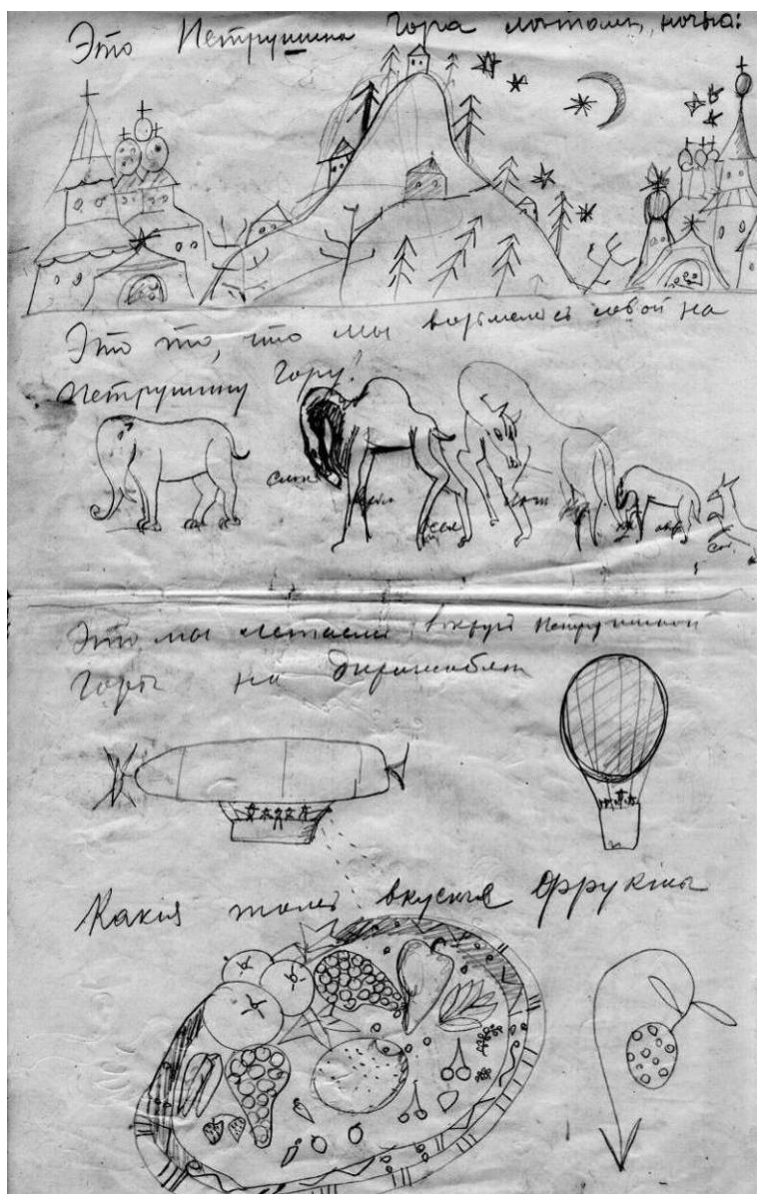 Это Петрушина Гора лѣтомъ, ночью:
Это то, что мы возьмемъ с собой на
Петрушину Гору!
слон
осел
Это мы летаемъ вокругъ Петрушиной
Горы на дирижабле
Какія тамъ вкусныя Фрукты